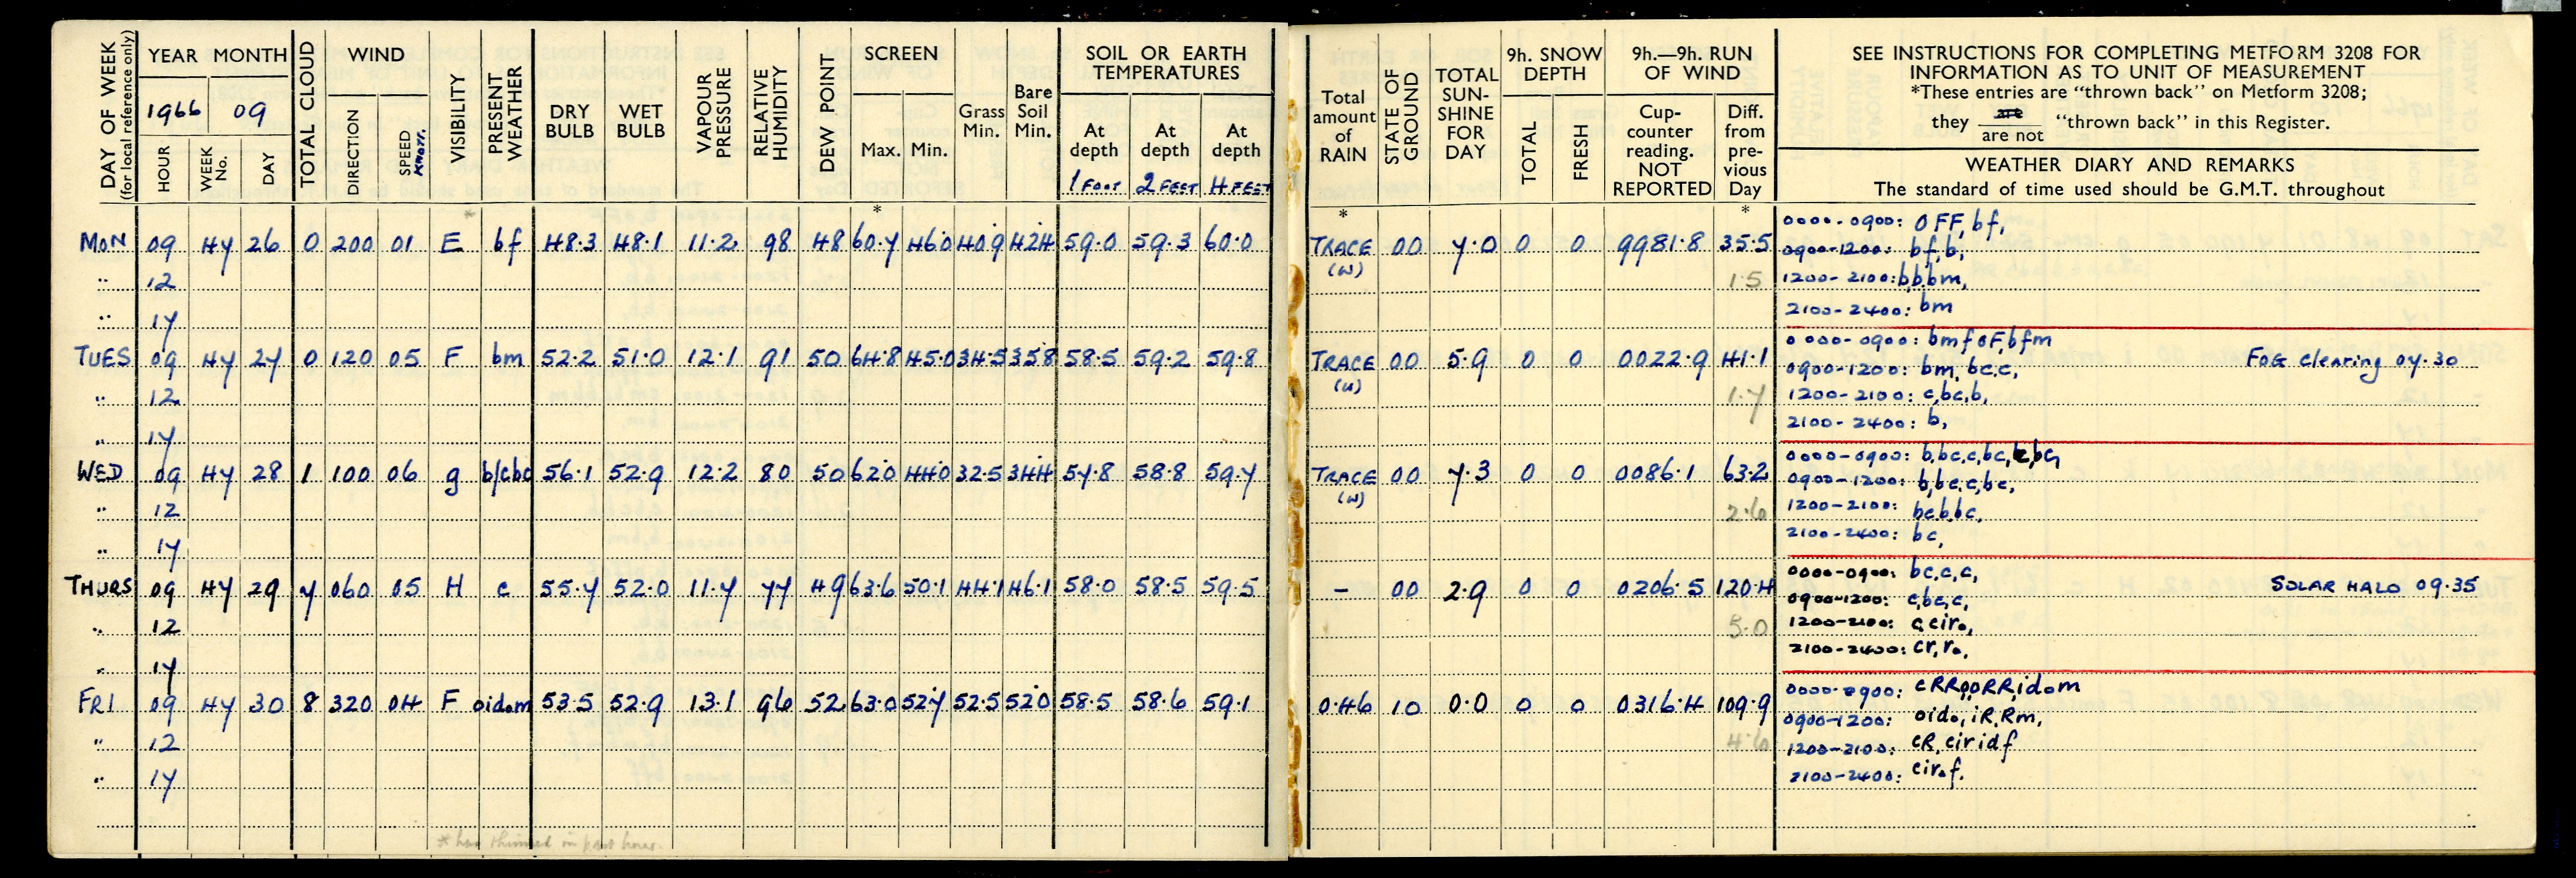 DAY OF WEEK
(for local reference only)
YEAR MONTH
1966 09
HOUR
WEEK No.
DAY
TOTAL CLOUD
WIND
DIRECTION
SPEED KNOTS.
VISIBILITY
PRESENT WEATHER
DRY BULB
WET BULB
VAPOUR PRESSURE
RELATIVE HUMIDITY
DEW POINT
SCREEN
Max. Min.
Grass Min.
Bare Soil Min.
SOIL OR EARTH TEMPERATURES
At depth 1 FOOT
At depth 2 FEET
At depth 4 FEET
Total amount of RAIN
STATE OF GROUND
TOTAL SUN-SHINE FOR DAY
9h. SNOW DEPTH
TOTAL
FRESH
9h.—9h. RUN OF WIND
Cup-counter reading. NOT REPORTED
Diff. from pre-vious Day
SEE INSTRUCTIONS FOR COMPLETING METFORM 3208 FOR
INFORMATION AS TO UNIT OF MEASUREMENT
*These entries are "thrown back" on Metform 3208;
they are / are not "thrown back" in this Register.
WEATHER DIARY AND REMARKS
The standard of time used should be G.M.T. throughout
* * *
MON 09 47 26 0 200 01 E bf 48.3 48.1 11.2 98 48 60.7 46.0 40.9 42.4 59.0 59.3 60.0 TRACE (W) 00 7.0 0 0 9981.8 35.5
0000-0900: OFF, bf,
0900-1200: bf, b,
" 12 1.5
1200-2100: b,b,bm,
" 17
2100-2400: bm
TUES 09 47 27 0 120 05 F bm 52.2 51.0 12.1 91 50 64.8 45.0 34.5 35.8 58.5 59.2 59.8 TRACE (W) 00 5.9 0 0 0022.9 41.1
0000-0900: bmfoF,bfm FOG clearing 07.30
0900-1200: bm, bc,c,
" 12 1.7
1200-2100: c,bc,b,
" 17
2100-2400: b,
WED 09 47 28 1 100 06 g b/cbc 56.1 52.9 12.2 80 50 62.0 44.0 32.5 34.4 57.8 58.8 59.7 TRACE (W) 00 7.3 0 0 0086.1 63.2
0000-0900: b,bc,c,bc, bc,
0900-1200: b,bc,c,bc,
" 12 2.6
1200-2100: bc,b,bc,
" 17
2100-2400: bc,
THURS 09 47 29 7 060 05 H c 55.7 52.0 11.7 77 49 63.6 50.1 44.1 46.1 58.0 58.5 59.5 - 00 2.9 0 0 0206.5 120.4
0000-0900: bc,c,c, SOLAR HALO 09.35
0900-1200: c,bc,c,
" 12 5.0
1200-2100: c,ciro,
" 17
2100-2400: cr,ro,
FRI 09 47 30 8 320 04 F oidom 53.5 52.9 13.1 96 52 63.0 52.7 52.5 52.0 58.5 58.6 59.1 0.46 10 0.0 0 0 0316.4 109.9
0000-0900: cRR,o,oRR,idom
0900-1200: oido,iR,Rm,
" 12 4.6
1200-2100: cR,ciridf
" 17
2100-2400: cirof,
* has thinned in past hour.